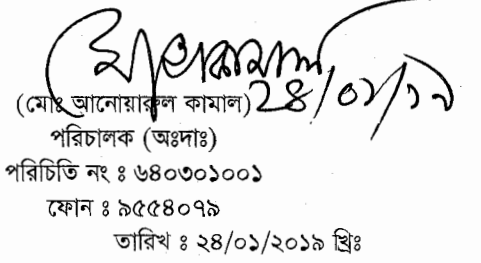 মোঃ আঃ কামাল ২৪/০১/১৯
(মোঃ আনোয়ারুল কামাল)
পরিচালক (অঃদাঃ)
পরিচিতি নং ঃ ৬৪০৩০১০০১
ফোন ঃ ৯৫৫৪০৭৯
তারিখ ঃ ২৪/০১/২০১৯ খ্রিঃ